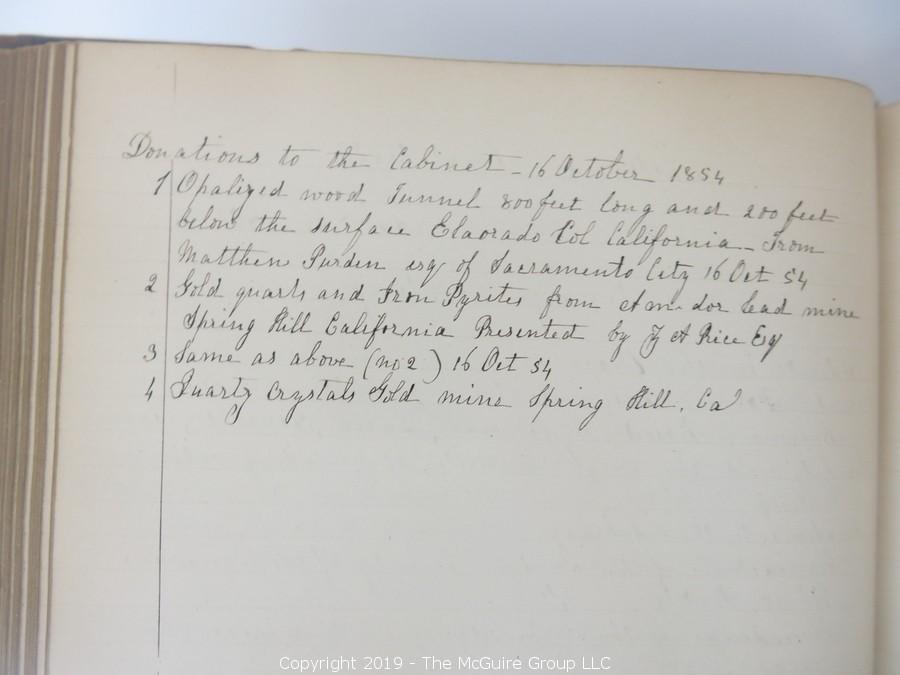 Donations to the Cabinet - 16 October 1854
1 Opalized wood Tunnel 800 feet long and 200 feet
below the surface Eldorado Col California - From
Matthew Purden esq of Sacramento City 16 Oct 54
2 Gold quarts and Iron Pyrites from Amador lead mine
Spring Hill California Presented by A Rice Esq
3 Same as above (no 2) 16 Oct 54
4 Quartz Crystals Gold mine Spring Hill. Ca
Copyright 2019 - The McGuire Group LLC